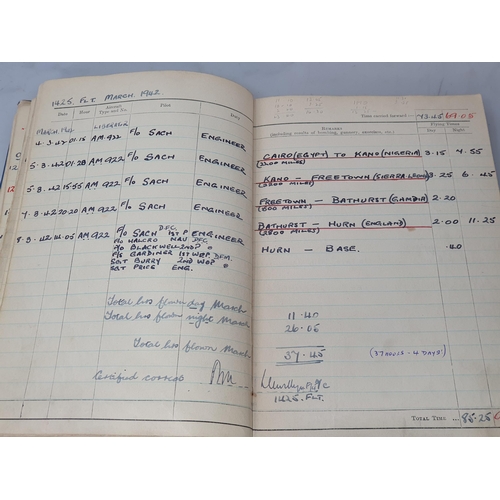 1425. FLT. MARCH. 1942.
Date
Hour
Aircraft Type and No.
Pilot
Duty
MARCH. 1942
LIBERATOR
4.3.42 01.15 AM.922 F/O SACH ENGINEER
5.3.42 01.28 AM.922 F/O SACH ENGINEER
5.3.42 15.55 AM.922 F/O SACH ENGINEER
7.3.42 20.20 AM.922 F/O SACH ENGINEER
8.3.42 14.05 AM.922 F/O SACH DFC 1ST P ENGINEER
F/O HALCRO NAV DFC.
P/O BLACKWELL 2ND P
F/S GARDINER 1ST WOP DFM.
SGT BURRY 2ND WOP
SGT PRICE ENG.
Total hrs flown day March
Total hrs flown night March
Total hrs flown March
Certified correct
Time carried forward :—
73.45 69.05
REMARKS
Flying Times
Day
Night
CAIRO (EGYPT) TO KANO (NIGERIA) 3.15 4.55
(2200 MILES)
KANO – FREETOWN (SIERRA LEONE) 3.25 6.45
FREETOWN – BATHURST (GAMBIA) 2.20
(600 MILES)
BATHURST – HURN (ENGLAND) 2.00 11.25
(2800 MILES)
HURN – BASE. .40
11.40
26.05
37.45 (37 HOURS – 4 DAYS)
1425. FLT.
TOTAL TIME ... 85.25